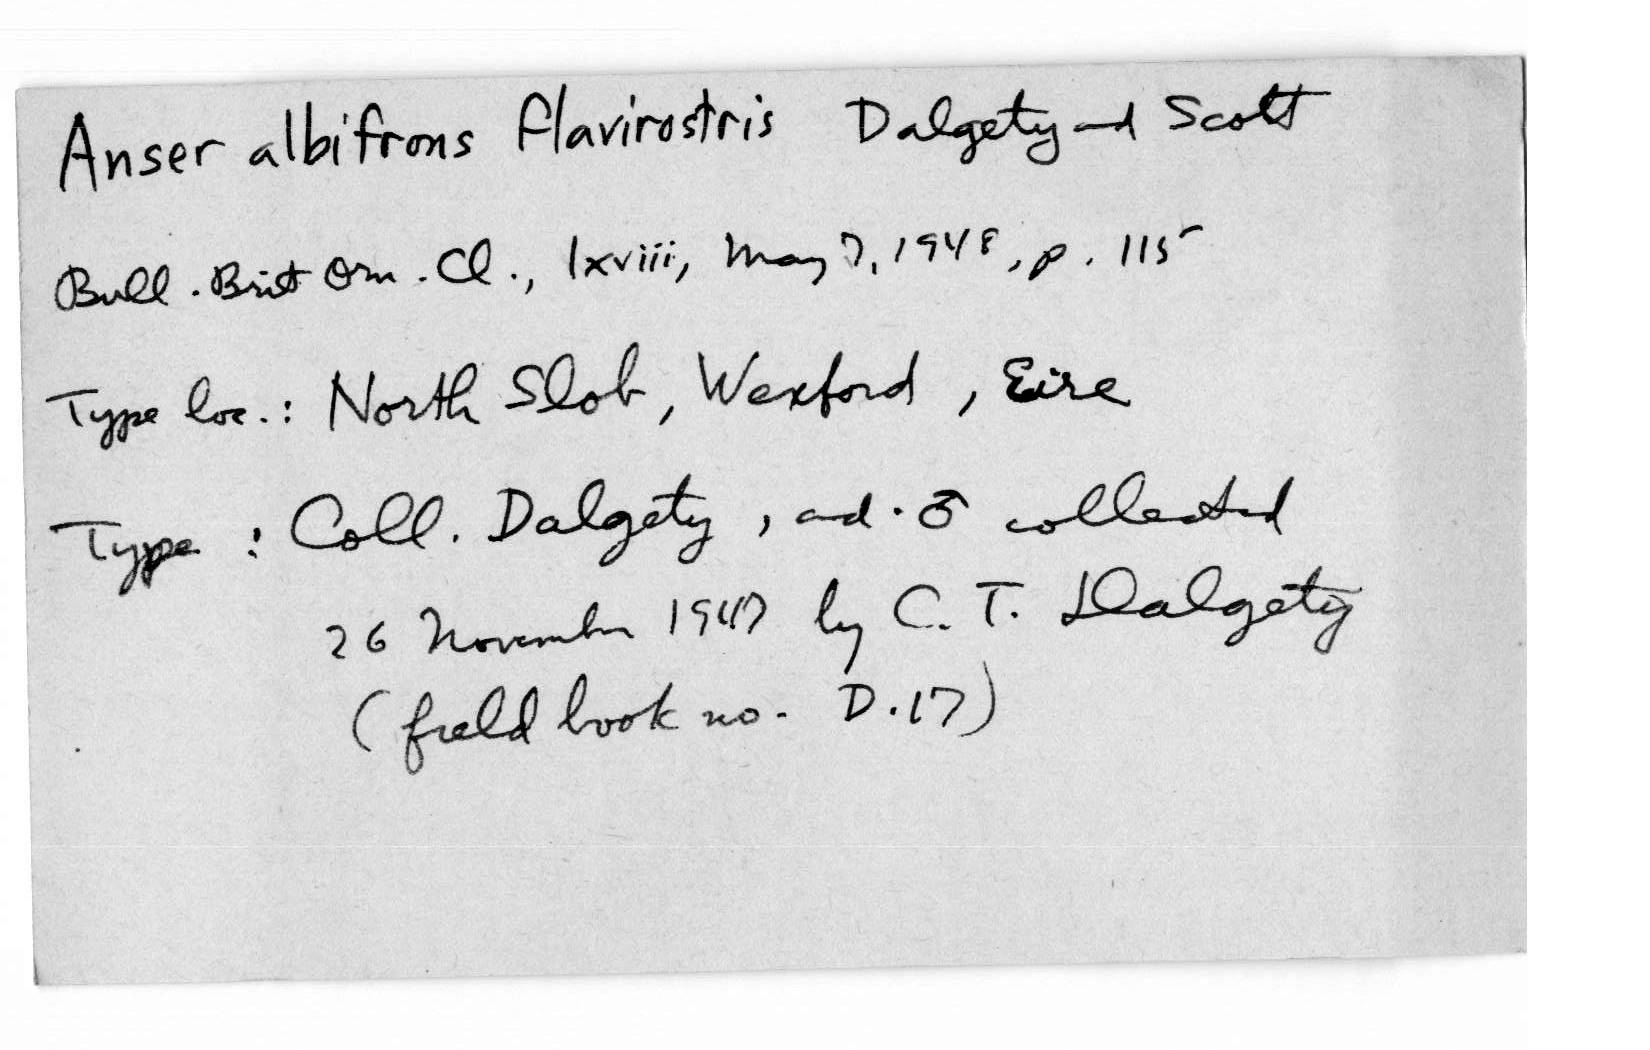 Anser albifrons flavirostris Dalgety and Scott
Bull. Brit Orn. Cl., lxviii, May 7, 1948, p. 115
Type loc.: North Slob, Wexford, Eire
Type : Coll. Dalgety, ad. ♂ collected
26 November 1947 by C. T. Dalgety
(field book no. D.17)